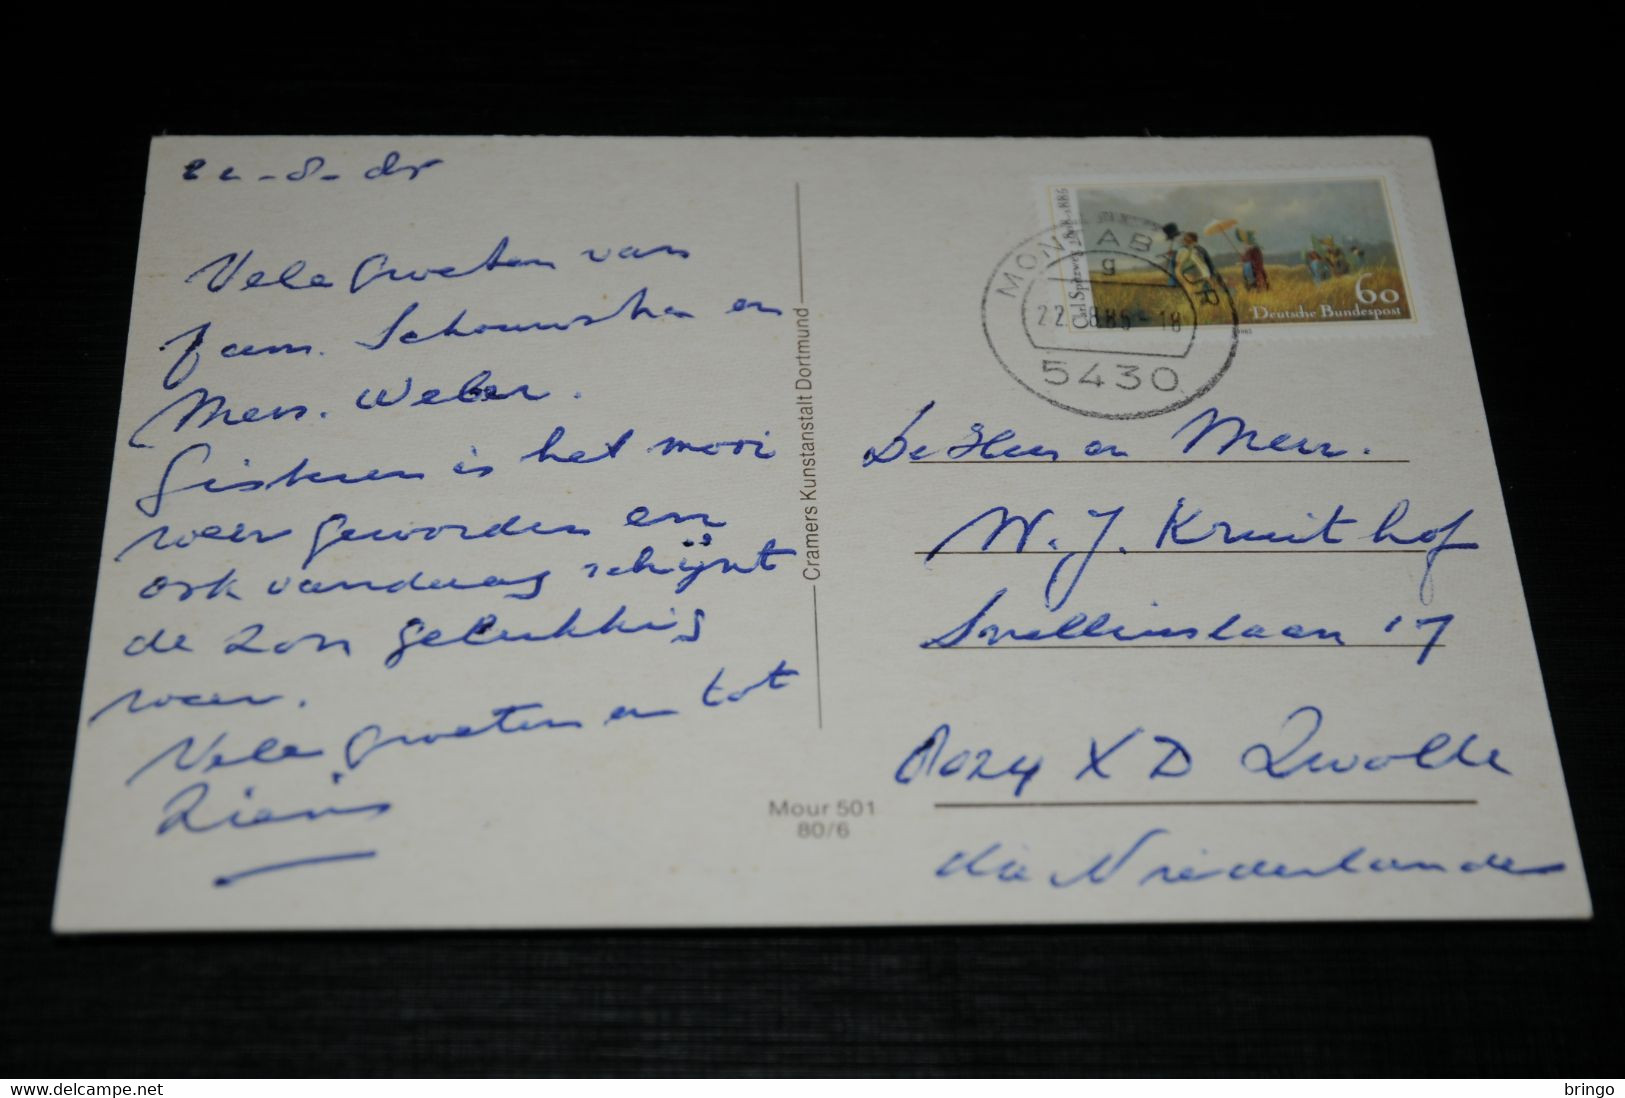 22-8-85
Vele groeten van
fam. Schouwstra en
Mevr. Weber.
Gisteren is het mooi
weer geworden en
ook vandaag schijnt
de zon gelukkig
weer.
Vele groeten en tot
ziens
Cramers Kunstanstalt Dortmund
Mour 501
80/6
Carl Spitzweg 1808-1885
60
Deutsche Bundespost
1985
MONTABAUR
g
22.8.85-18
5430
De Heer en Mevr.
W. J. Kruithof
Snellinslaan 17
XD Zwolle
die Niederlande
© Delcampe
bringo